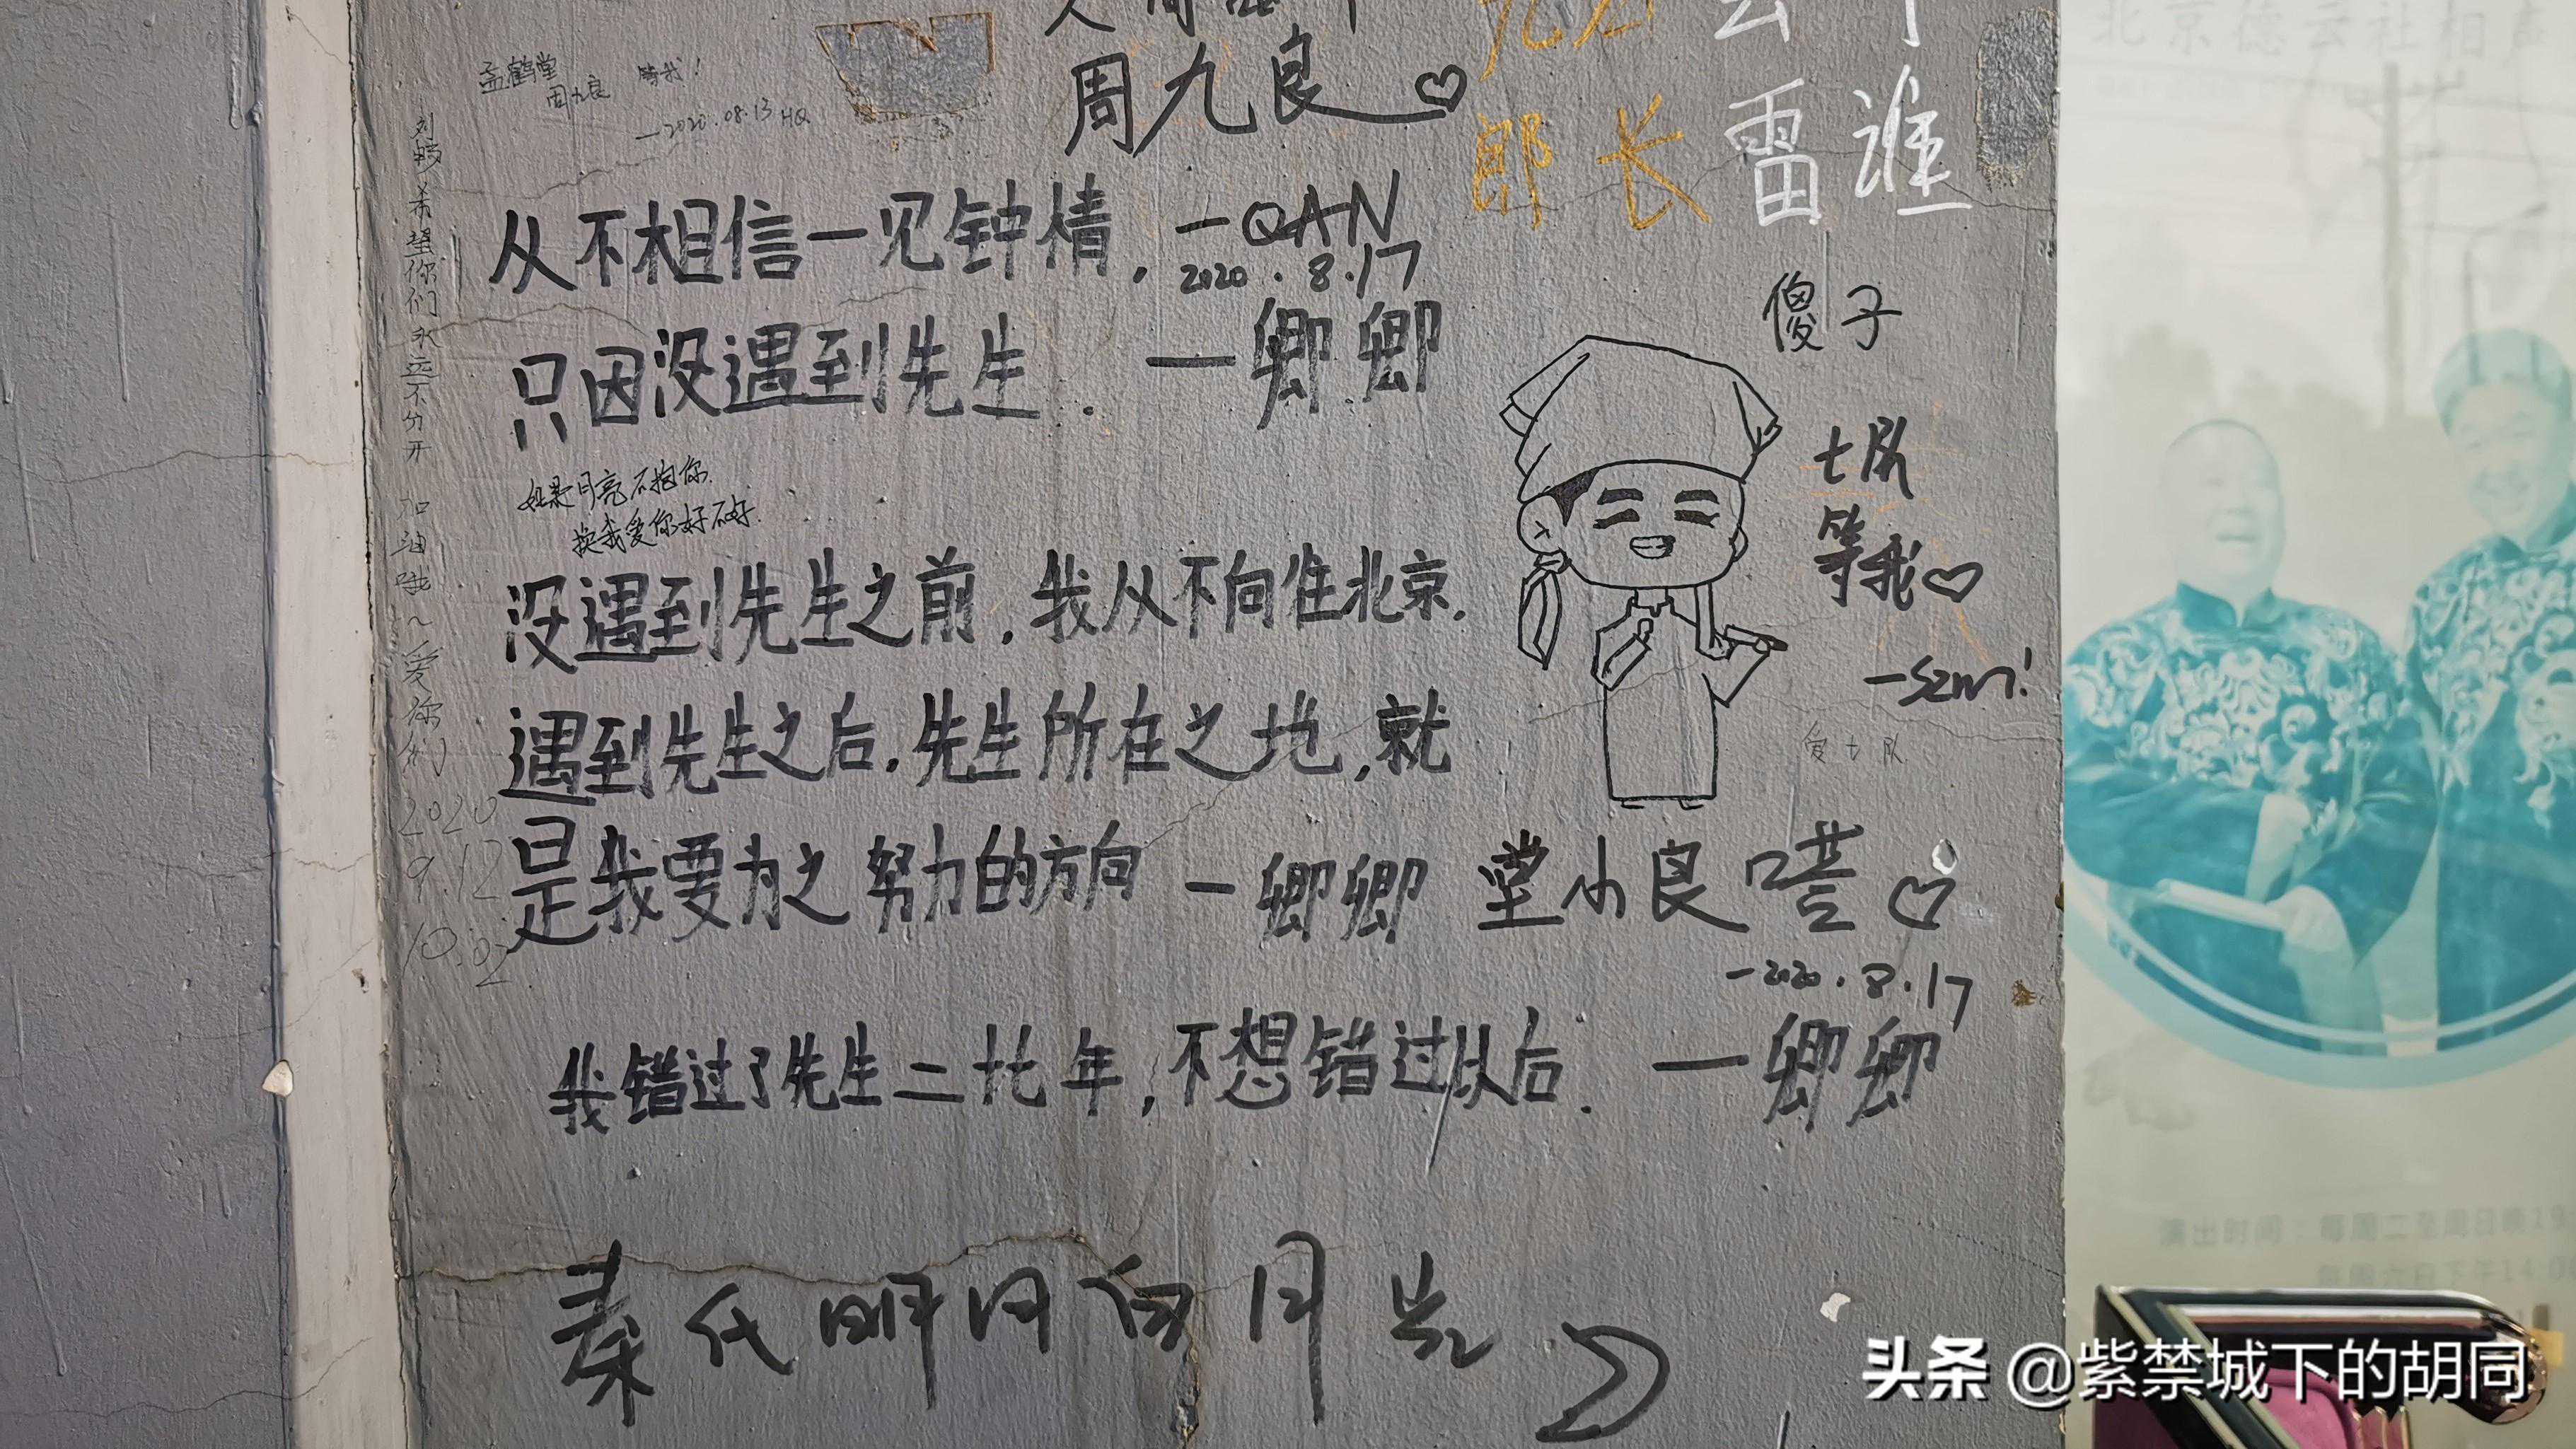 周九良
孟鹤堂
周九良 等我!
—2020.08.13 HQ
北京德云社相声
郎 长 雷 谁
刘畅 希望你们永远不分开 加油哦~爱你们 2020 9.12 10.02
从不相信一见钟情,
—QAN
2020.8.17
只因没遇到先生. —卿卿
傻子
七队
等我
—SZM!
如果月亮不抱你.
换我爱你好不好.
没遇到先生之前,我从不向住北京.
遇到先生之后,先生所在之地,就
是我要为之努力的方向 —卿卿
爱七队
堂小良嗒
—2020.8.17
我错过了先生二十七年,不想错过以后. —卿卿
秦氏明月白月光
演出时间:每周二至周日晚19
每周六日下午14:0
头条 @紫禁城下的胡同